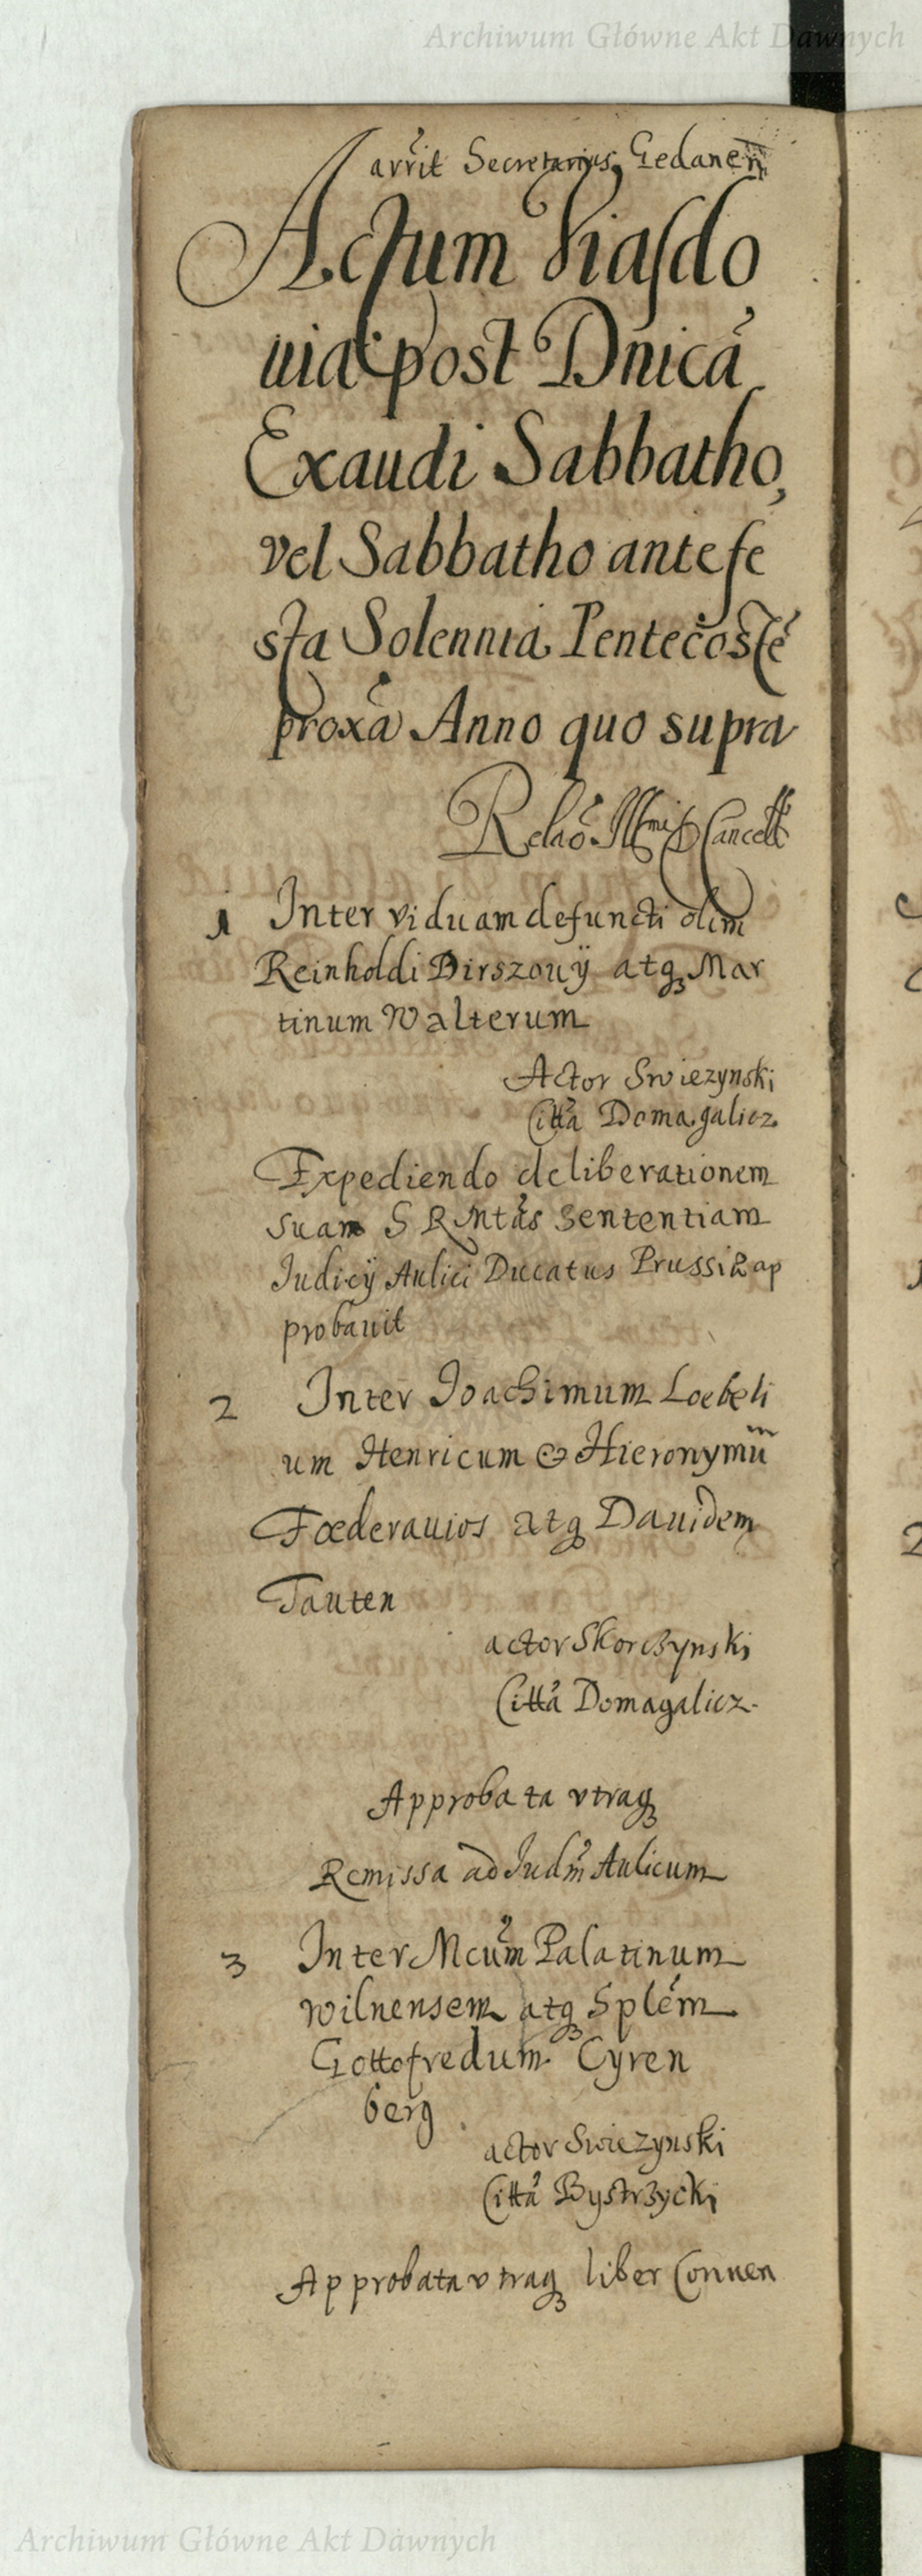 Archiwum Główne Akt Dawnych
arrit Secretarius Gedanen
Actum Viasdo
uiae post Dnicã
Exaudi Sabbatho,
vel Sabbatho ante fe
sta Solennia Pentecostẽ
proxã Anno quo supra
Relaõ Illmi D Cancell
1 Inter viduam defuncti olim
Reinholdi Dirszouÿ atq Mar
tinum Walterum
Actor Swiezynski
Cittã Domagalicz.
Expediendo deliberationem
suam S R Mtãs Sententiam
Judicÿ Aulici Ducatus Prussiæ ap
probauit
2 Inter Joachimum Loebeli
um Henricum & Hieronymũ
Fœderauios atq Dauidem
Tauten
actor Skorczynski
Cittã Domagalicz.
Approbata vtraq
Remissa ad Judm̃ Aulicum
3 Inter Mcũm Palatinum
Wilnensem atq Splẽm
Gottofredum Cyren
berg
actor Swiezynski
Cittã Bystrzycki
Approbata vtraq liber Conuen
Archiwum Główne Akt Dawnych